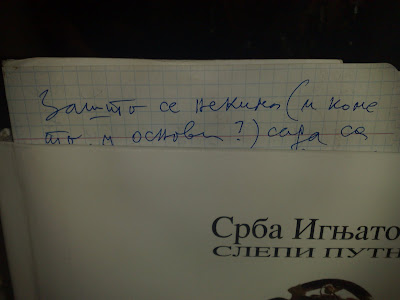 Зашто се некима (и коме
то и основи?) сада са
Срба Игњато
СЛЕПИ ПУТН